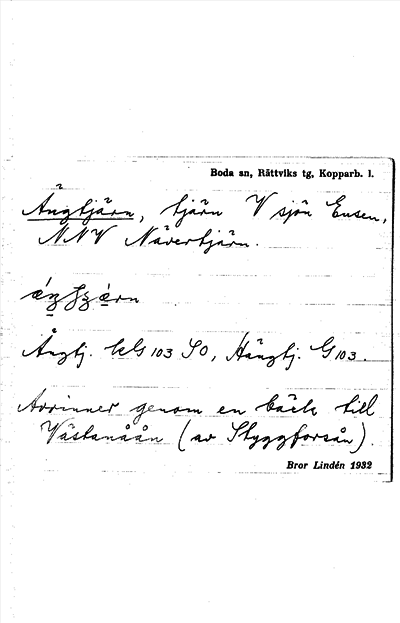 Boda sn, Rättviks tg, Kopparb. l.
Ängtjärn, tjärn V sjön Ensen,
NNV Nävertjärn.
Ängtj. kG 103 SO, Hängtj. G 103.
Avrinner genom en bäck till
Västanåån (av Styggforsån).
Bror Lindén 1932